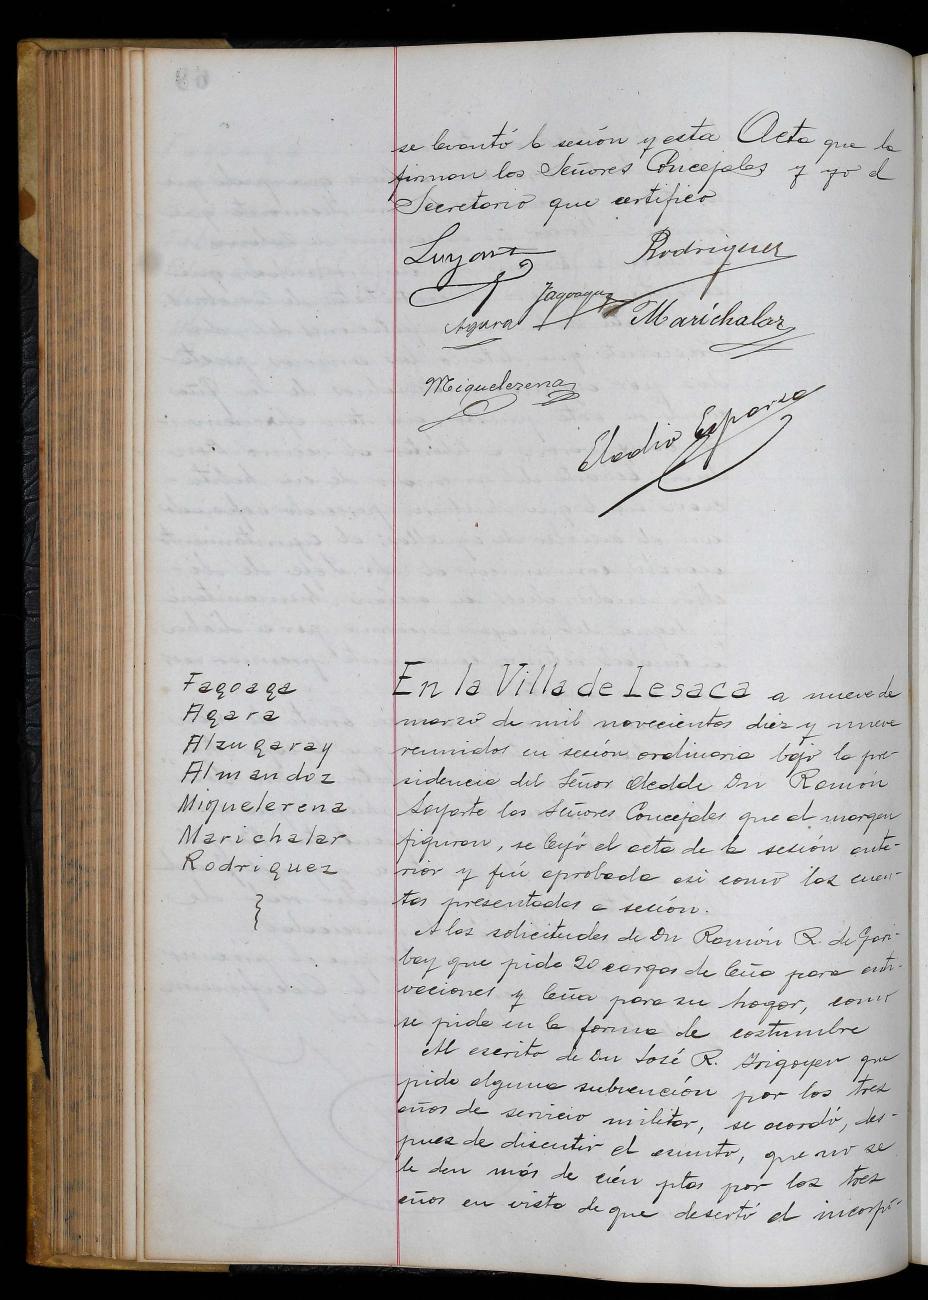 se levantó la sesión y esta Acta que la
firman los Señores Concejales y yo el
Secretario que certifico
Rodriguez
Fagoaga
Agara
Marichalar
Miquelerena
Eladio Esparza
En la Villa de Lesaca a nueve de
marzo de mil novecientos diez y nueve
reunidos en sesión ordinaria bajo la pre-
sidencia del Señor Alcalde Dn Ramón
los Señores Concejales que al margen
figuran, se leyó el acta de la sesión ante-
rior y fué aprobada asi como las cuen-
tas presentadas a sesión.
A las solicitudes de Dn Ramón R. de Gari-
bay que pide 20 cargas de leña para
y leña para su hogar, como
se pide en la forma de costumbre
Al escrito de Dn José R. Irigoyen que
pide alguna subvención por los tres
años de servicio militar, se acordó, des-
pues de discutir el asunto, que no se
le den más de cién ptas por los tres
años en vista de que desertó al incorpo-
Fagoaga
Agara
Alzugaray
Almandoz
Miquelerena
Marichalar
Rodriguez